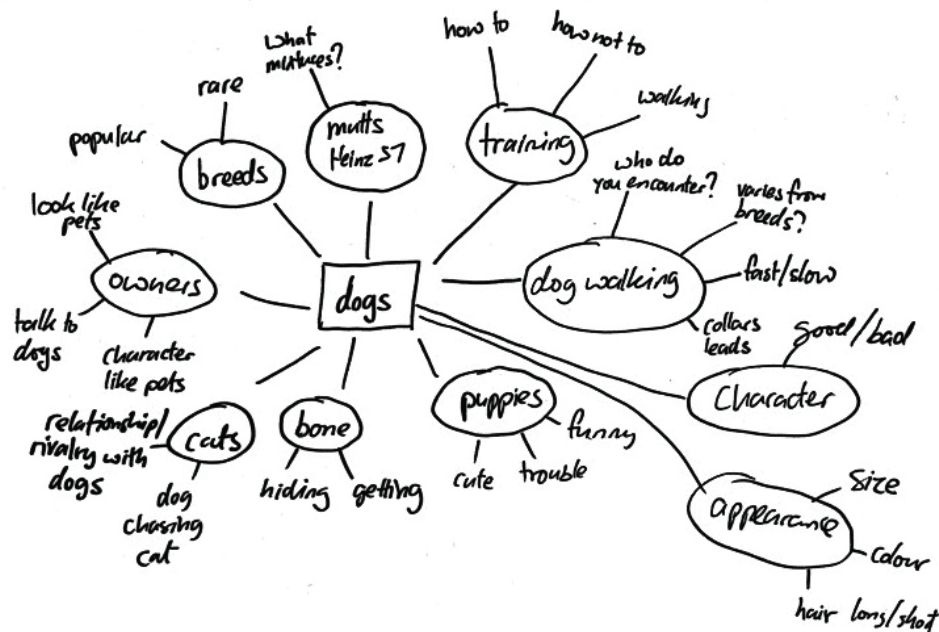 dogs
breeds
popular
rare
mutts
Heinz 57
What
mixtures?
training
how to
how not to
walking
dog walking
who do
you encounter?
varies from
breeds?
fast/slow
collars
leads
Character
good/bad
appearance
size
colour
hair long/short
puppies
funny
trouble
cute
bone
hiding
getting
cats
relationship/
rivalry with
dogs
dog
chasing
cat
owners
look like
pets
talk to
dogs
character
like pets